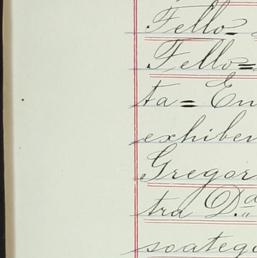 Fello=
Fello=
ta=En
exhiben
Gregor
tra D.a
soatego